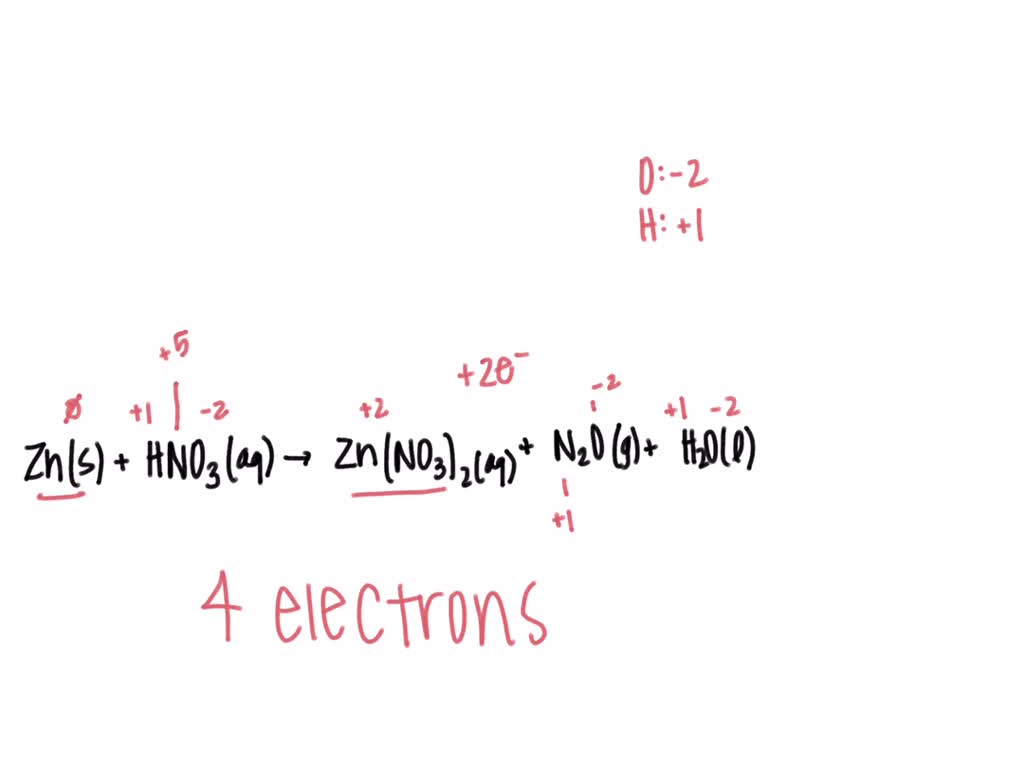 O:-2
H: +1
+5
+2e⁻
0 +1 -2 +2 -2 +1 -2
Zn(s) + HNO₃(aq) → Zn(NO₃)₂(aq) + N₂O(g) + H₂O(l)
+1
4 electrons